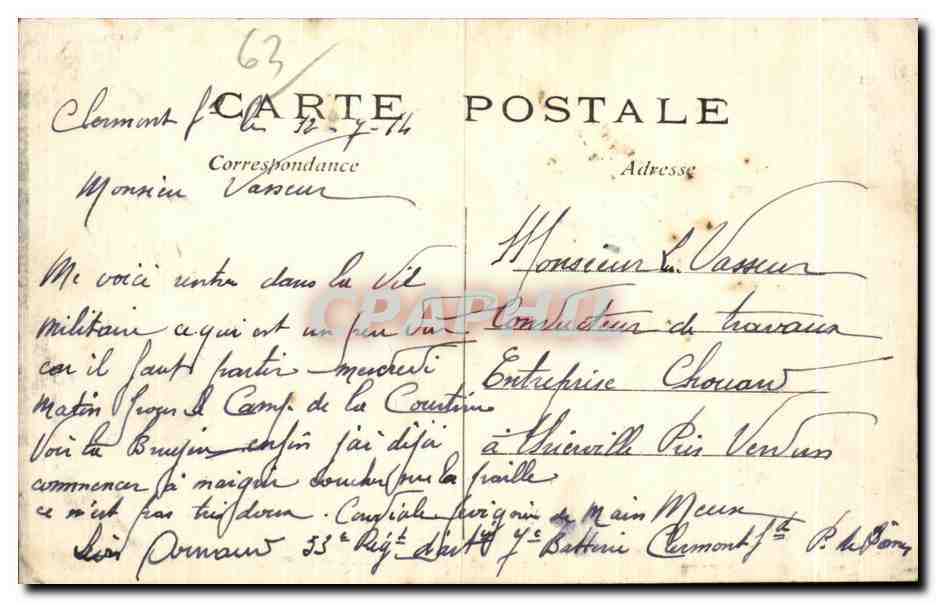 63
CARTE POSTALE
Clermont Fd le 32-7-14
Correspondance
Adresse
Monsieur Vasseur
Monsieur Vasseur
Conducteur de travaux
Entreprise Chouard
à Thierville Près Verdun
Me voici rentre dans la Vie
Militaire ce qui est un peu dur
car il faut partir mercredi
Matin pour le Camp de la Courtine
Voir la enfin j'ai déjà
commencer à maigrir coucher sur la paille
ce n'est pas très doux. Cordiale poignée de Main Meux
Léon Arnaud 53e Régt d'art 7e Batterie Clermont Fd P. de
CPAPHIL